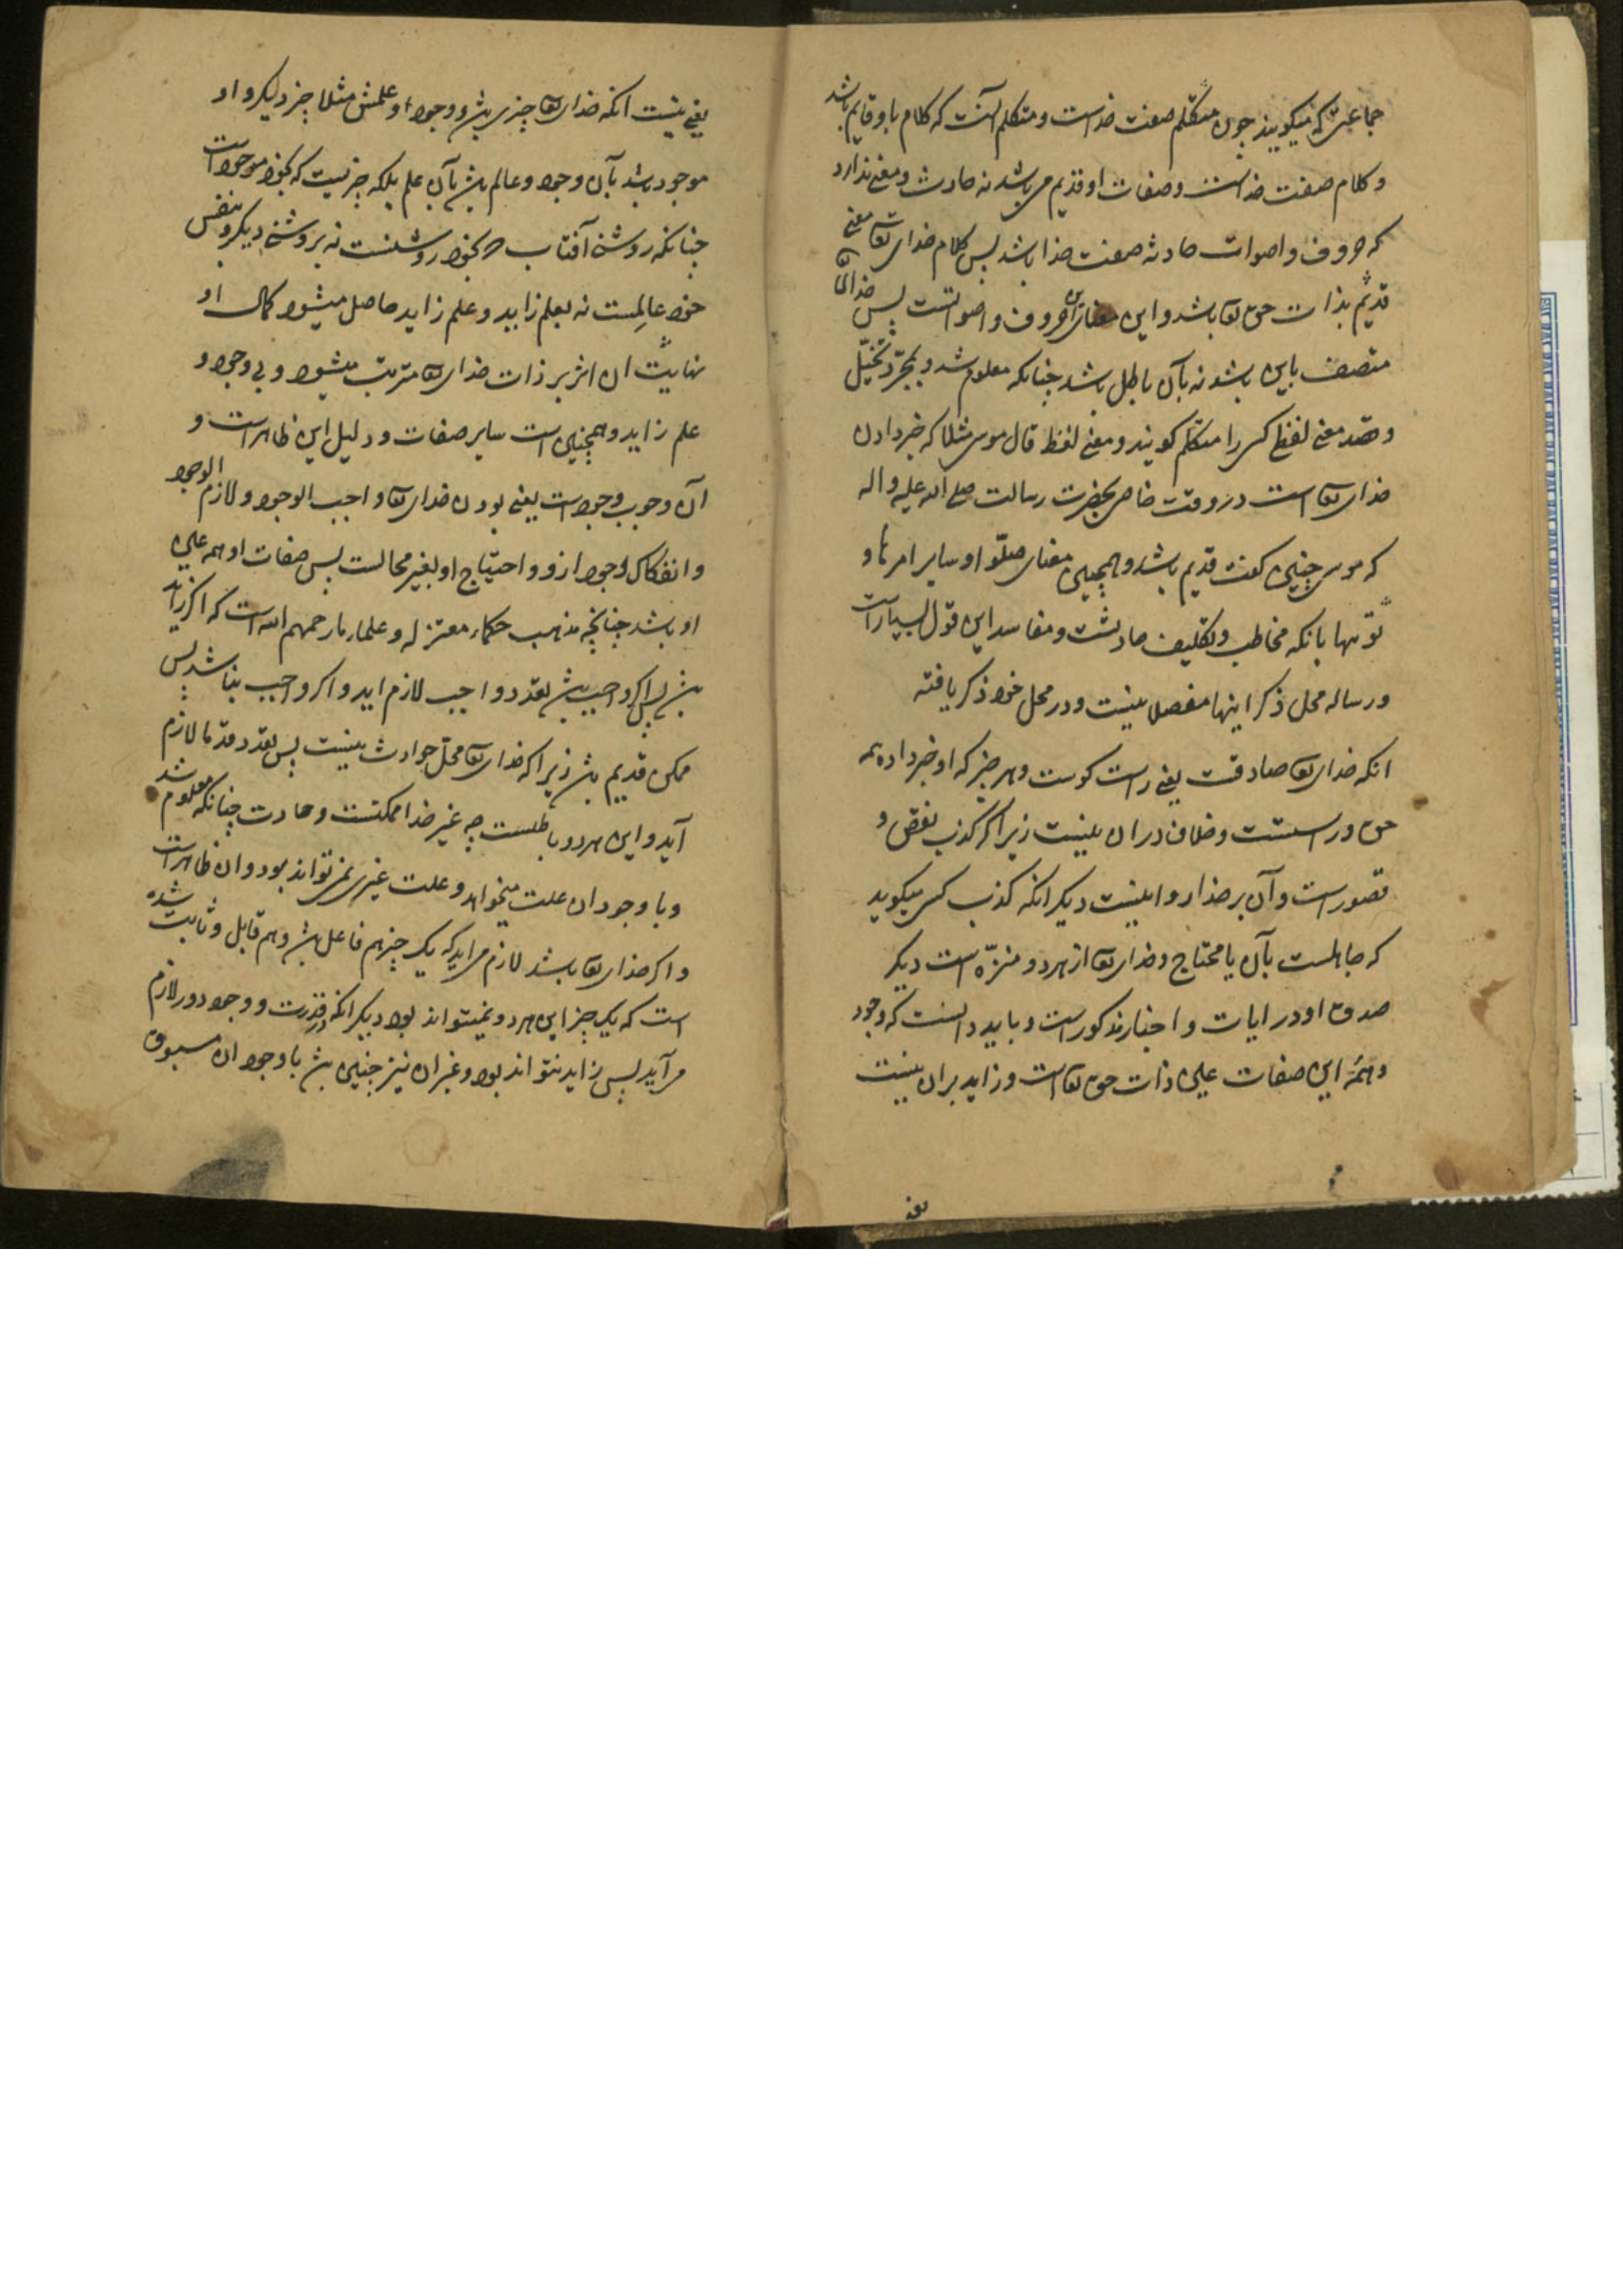 جماعتی که میگویند چون متکلم صفت خداست و متکلم آنست که کلام باو قایم باشد
و کلام صفت خداست و صفات او قدیم می باشد نه حادث و معنی ندارد
که حروف و اصوات حادثه صفت خدا باشد پس کلام خدای تعا معنی
قدیم بذات حق تعا باشد و این حروف و اصواتست پس خدا
متصف باین باشد نه بآن باطل باشد چنانکه معلوم شد و بمجرد تخیل
و قصد معنی لفظ کسی را متکلم گویند و معنی لفظ قال موسی مثلا که خبر دادن
خدای تعا است در وقت خاص بحضرت رسالت صلی الله علیه و اله
که موسی چنین گفت قدیم باشد و همچنین معنای صلّوا و سایر امرها و
نهیها بانکه مخاطب و تکلیف حادثست و مفاسد این قول بسیارست
و رساله محل ذکر اینها مفصلا نیست و در محل خود ذکر یافته
انکه خدای تعا صادقست یعنی راست کوست و هر چیز که او خبر داده همه
حق و راستست و خلاف در ان نیست زیرا که کذب نقص و
قصورست و آن بر خدا روا نیست دیگر انکه کذب کسی میگوید
که جاهلست بآن یا محتاج و خدای تعا از هر دو منزّه است دیگر
صدق او در ایات و اخبار مذکورست و باید دانست که وجود
و همهٔ این صفات عین ذات حق تعا است و زاید بر ان نیست
یعنی
یعنی نیست انکه خدای تعا چیزی باشد و وجود او و علمش مثلا چیز دیگر و او
موجود باشد بآن وجود و عالم باشد بآن علم بلکه چیزیست که بخود موجودست
چنانکه روشنی آفتاب که بخود روشنست نه بروشنی دیگر و بنفس
خود عالِمست نه بعلم زاید و علم زاید حاصل میشود کمال او
نهایت ان اثر بر ذات خدای تعا مترتب میشود و بی وجود و
علم زاید و همچنین است سایر صفات و دلیل این ظاهرست و
آن وجوب وجودست یعنی بودن خدای تعا واجب الوجود و لازم الوجود
و انفکاک وجود ازو و احتیاج او بغیر محالست پس صفات او همه عین
او باشد چنانچه مذهب حکما و معتزله و علمای ما رحمهم الله است که اکر زاید
باشد پس اکر واجب باشد تعدد واجب لازم اید و اکر واجب نباشد پس
ممکن قدیم باشد زیرا که خدای تعا محل حوادث نیست پس تعدد قدما لازم
آید و این هردو باطلست چه غیر خدا ممکنست و حادث چنانکه معلوم شد
و با وجود ان علت میخواهد و علت غیری نمی تواند بود و ان ظاهرست
و اکر خدای تعا باشد لازم می اید که یک چیز هم فاعل باشد و هم قابل و ثابت شده
است که یک چیز این هردو نمیتواند بود دیگر انکه در قدرت و وجود دور لازم
می آید پس زاید نتواند بود و غیر ان نیز چنین باشد با وجود ان مسبوق